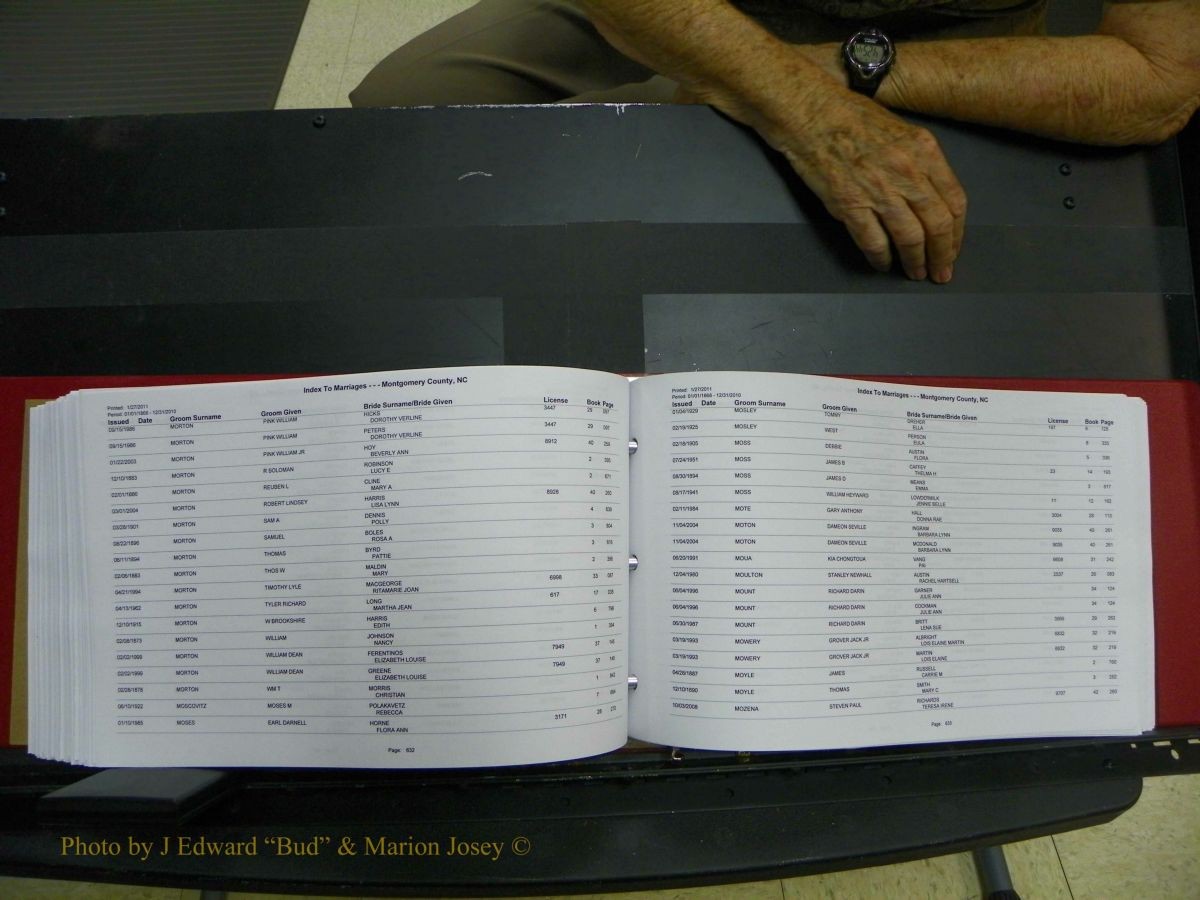 Index To Marriages - - - Montgomery County, NC
Printed: 1/27/2011
Period: 01/01/1868 - 12/31/2010
Issued Date Groom Surname Groom Given Bride Surname/Bride Given License Book Page
09/15/1986 MORTON PINK WILLIAM HICKS 3447 29
DOROTHY VERLINE
09/15/1986 MORTON PINK WILLIAM PETERS 3447 29
DOROTHY VERLINE
01/22/2003 MORTON PINK WILLIAM JR HOY 8912 40
BEVERLY ANN
12/10/1883 MORTON R SOLOMAN ROBINSON 2
LUCY E
02/01/1886 MORTON REUBEN L CLINE 2
MARY A
03/01/2004 MORTON ROBERT LINDSEY HARRIS 8928 40
LISA LYNN
03/28/1901 MORTON SAM A DENNIS 4
POLLY
08/22/1896 MORTON SAMUEL BOLES 3
ROSA A
08/11/1894 MORTON THOMAS BYRD 3
PATTIE
02/06/1883 MORTON THOS W MALDIN 2
MARY
04/21/1994 MORTON TIMOTHY LYLE MACGEORGE 6998 33
RITAMARIE JOAN
04/13/1962 MORTON TYLER RICHARD LONG 617 17
MARTHA JEAN
12/10/1915 MORTON W BROOKSHIRE HARRIS 6
EDITH
02/08/1873 MORTON WILLIAM JOHNSON 1
NANCY
02/02/1999 MORTON WILLIAM DEAN FERENTINOS 7949 37
ELIZABETH LOUISE
02/02/1999 MORTON WILLIAM DEAN GREENE 7949 37
ELIZABETH LOUISE
02/28/1878 MORTON WM T MORRIS 1
CHRISTIAN
06/10/1922 MOSCOVITZ MOSES M POLAKAVETZ 7
REBECCA
01/10/1985 MOSES EARL DARNELL HORNE 3171 28
FLORA ANN
Page: 632
Index To Marriages - - - Montgomery County, NC
Printed: 1/27/2011
Period: 01/01/1868 - 12/31/2010
Issued Date Groom Surname Groom Given Bride Surname/Bride Given License Book Page
01/04/1929 MOSLEY TOMMY DREHER 197
ELLA
02/19/1925 MOSLEY WEST PERSON 8
EULA
02/18/1905 MOSS DEBBIE AUSTIN 5
FLORA
07/24/1951 MOSS JAMES B CAFFEY 23 14 193
THELMA H
08/30/1894 MOSS JAMES D MEANS 3
EMMA
08/17/1941 MOSS WILLIAM HEYWARD LOWDERMILK 11 12
JENNIE BELLE
02/11/1984 MOTE GARY ANTHONY HALL 3004 28
DONNA RAE
11/04/2004 MOTON DAMEON SEVILLE INGRAM 9035 40 261
BARBARA LYNN
11/04/2004 MOTON DAMEON SEVILLE MCDONALD 9035 40 261
BARBARA LYNN
06/20/1991 MOUA KIA CHONGTOUA VANG 31 242
PAI
12/04/1980 MOULTON STANLEY NEWHALL AUSTIN 2537
RACHEL HARTSELL
06/04/1996 MOUNT RICHARD DARIN GARNER 34 124
JULIE ANN
06/04/1996 MOUNT RICHARD DARIN COOKMAN 34 124
JULIE ANN
05/30/1987 MOUNT RICHARD DARIN BRITT 29
LENA SUE
03/19/1993 MOWERY GROVER JACK JR ALBRIGHT 6832 32 219
LOIS ELAINE MARTIN
03/19/1993 MOWERY GROVER JACK JR MARTIN 6832 32 219
LOIS ELAINE
04/26/1887 MOYLE JAMES RUSSELL 2 760
CARRIE M
12/10/1890 MOYLE THOMAS SMITH 3
MARY C
10/03/2008 MOZENA STEVEN PAUL RICHARDS 9707 42 260
TERESA IRENE
Page: 633
Photo by J Edward “Bud” & Marion Josey ©